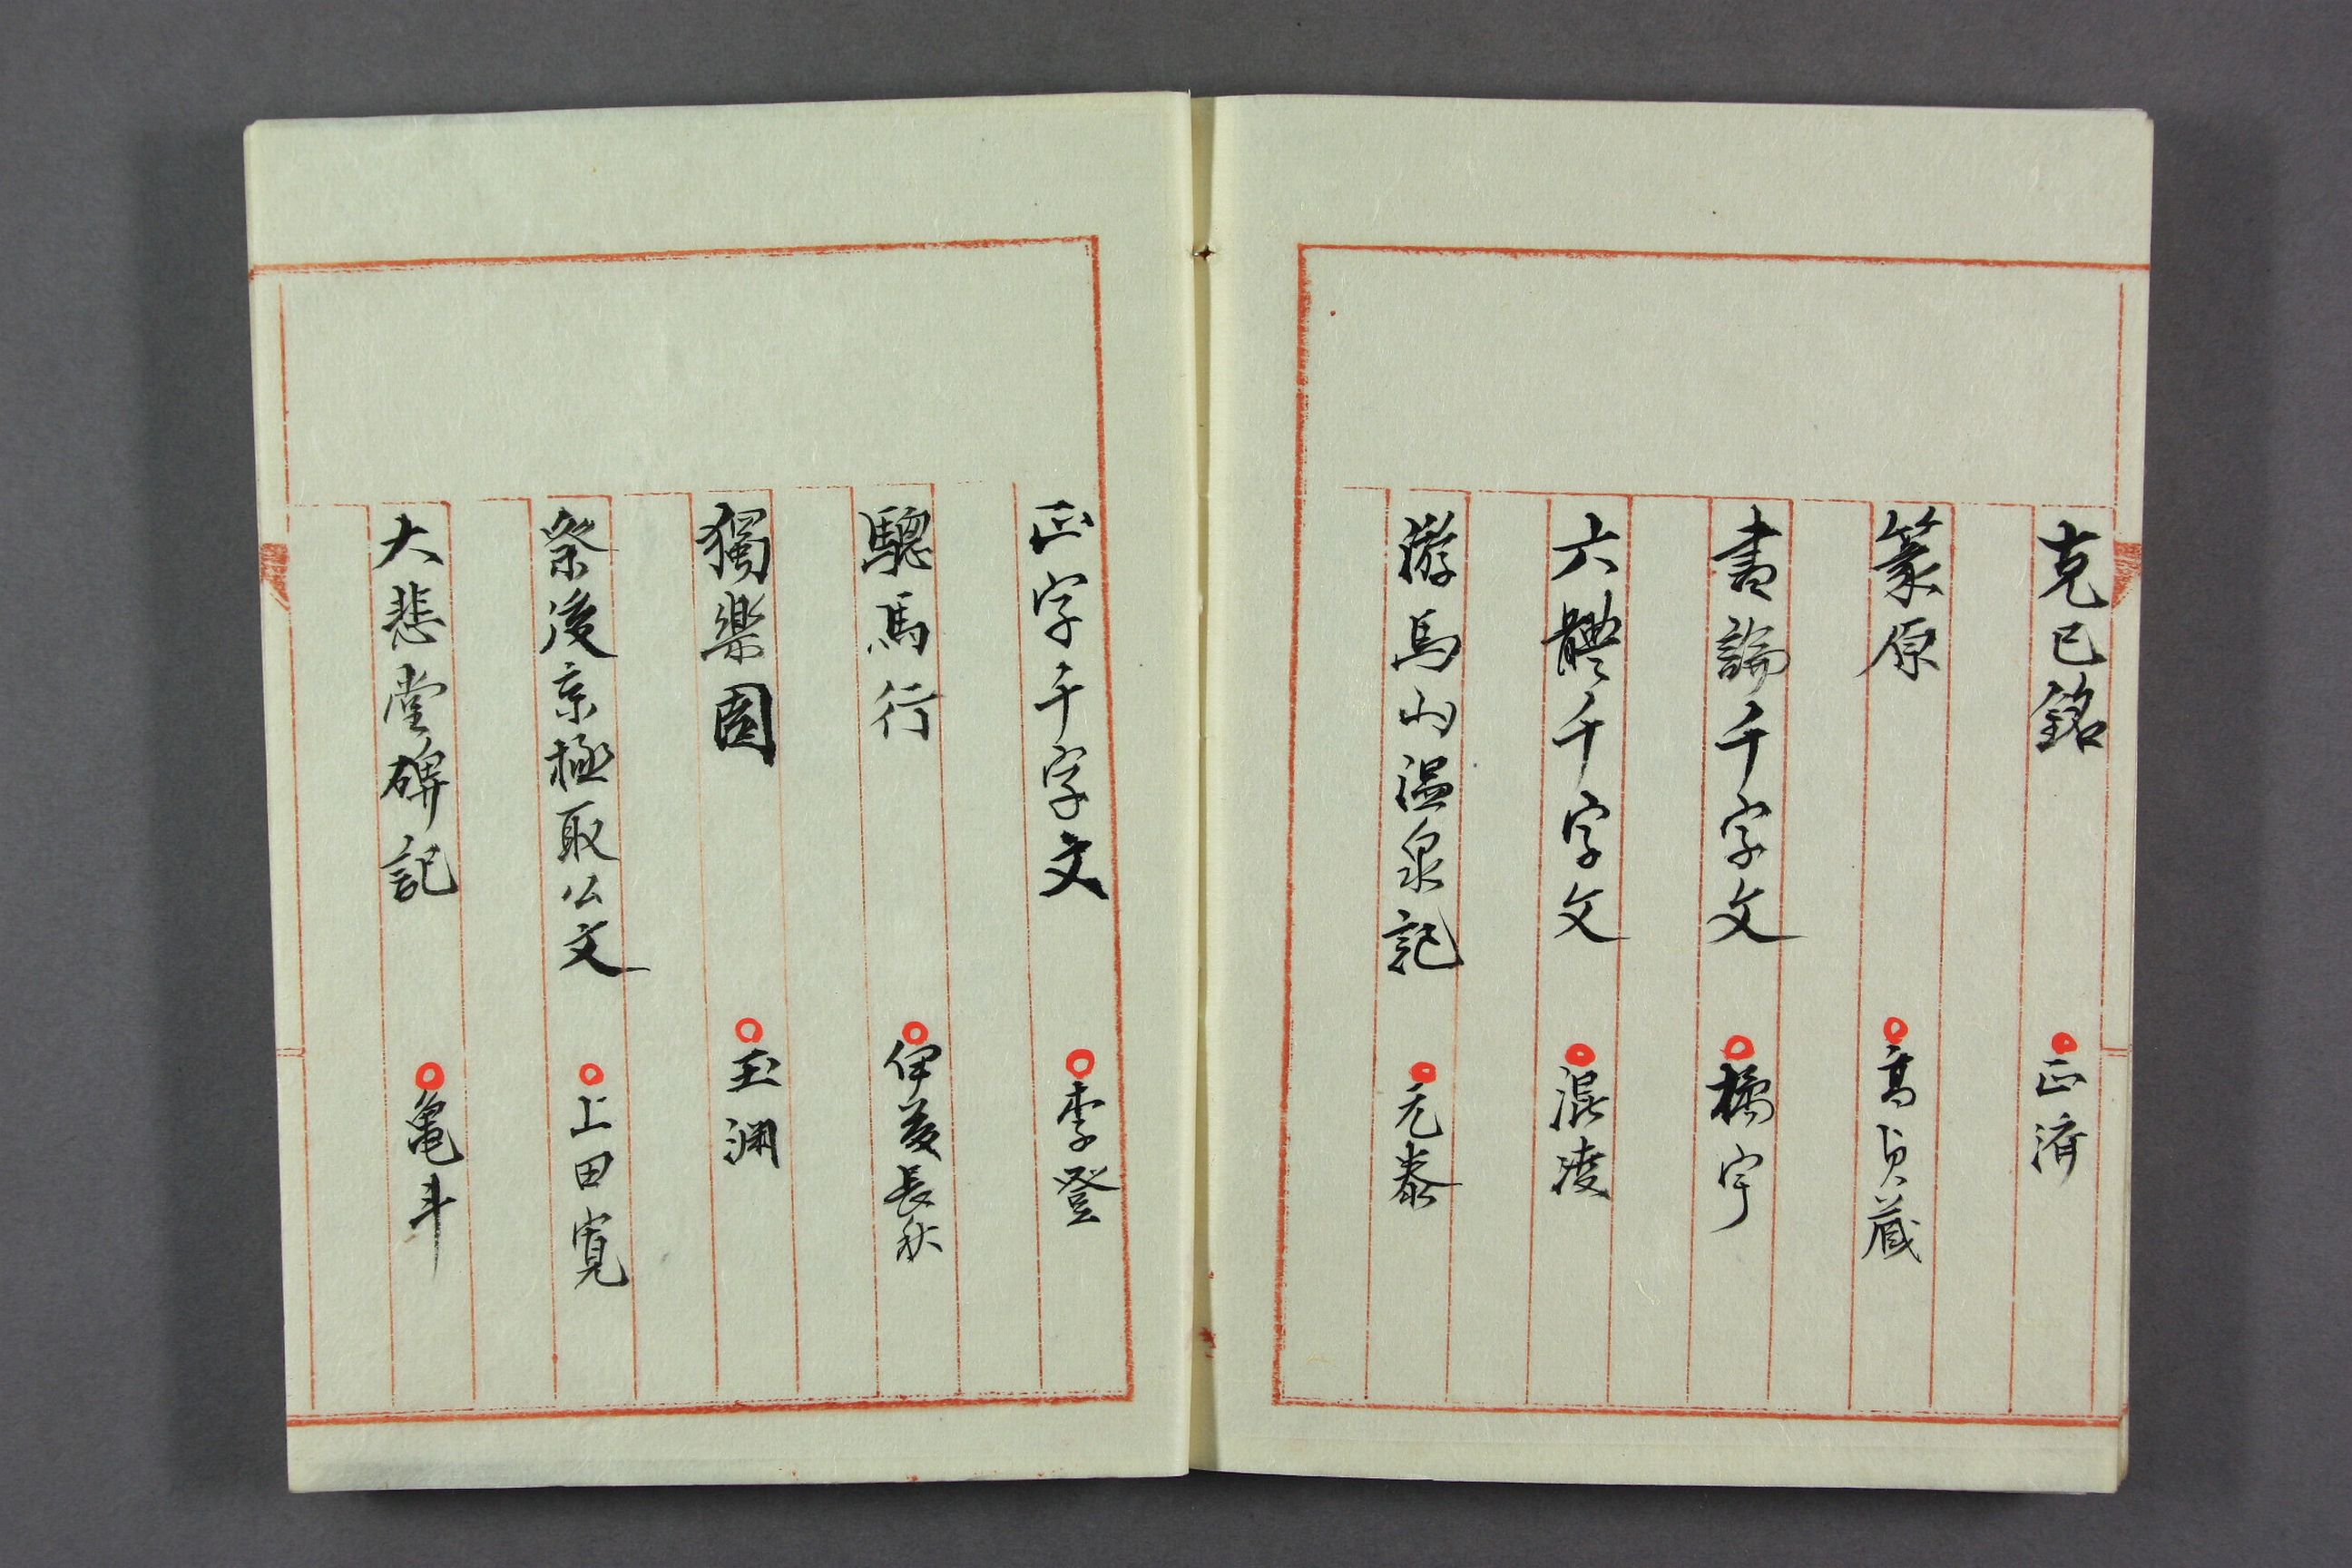 克已銘 正濟
篆原 高貞蔵
書論千字文 橘宇
六體千字文 混淩
游馬山温泉記 元泰
正字千字文 李登
驄馬行 伊養長秋
獨樂園 玉淵
祭後京極殿公文 上田寛
大悲堂碑記 亀斗